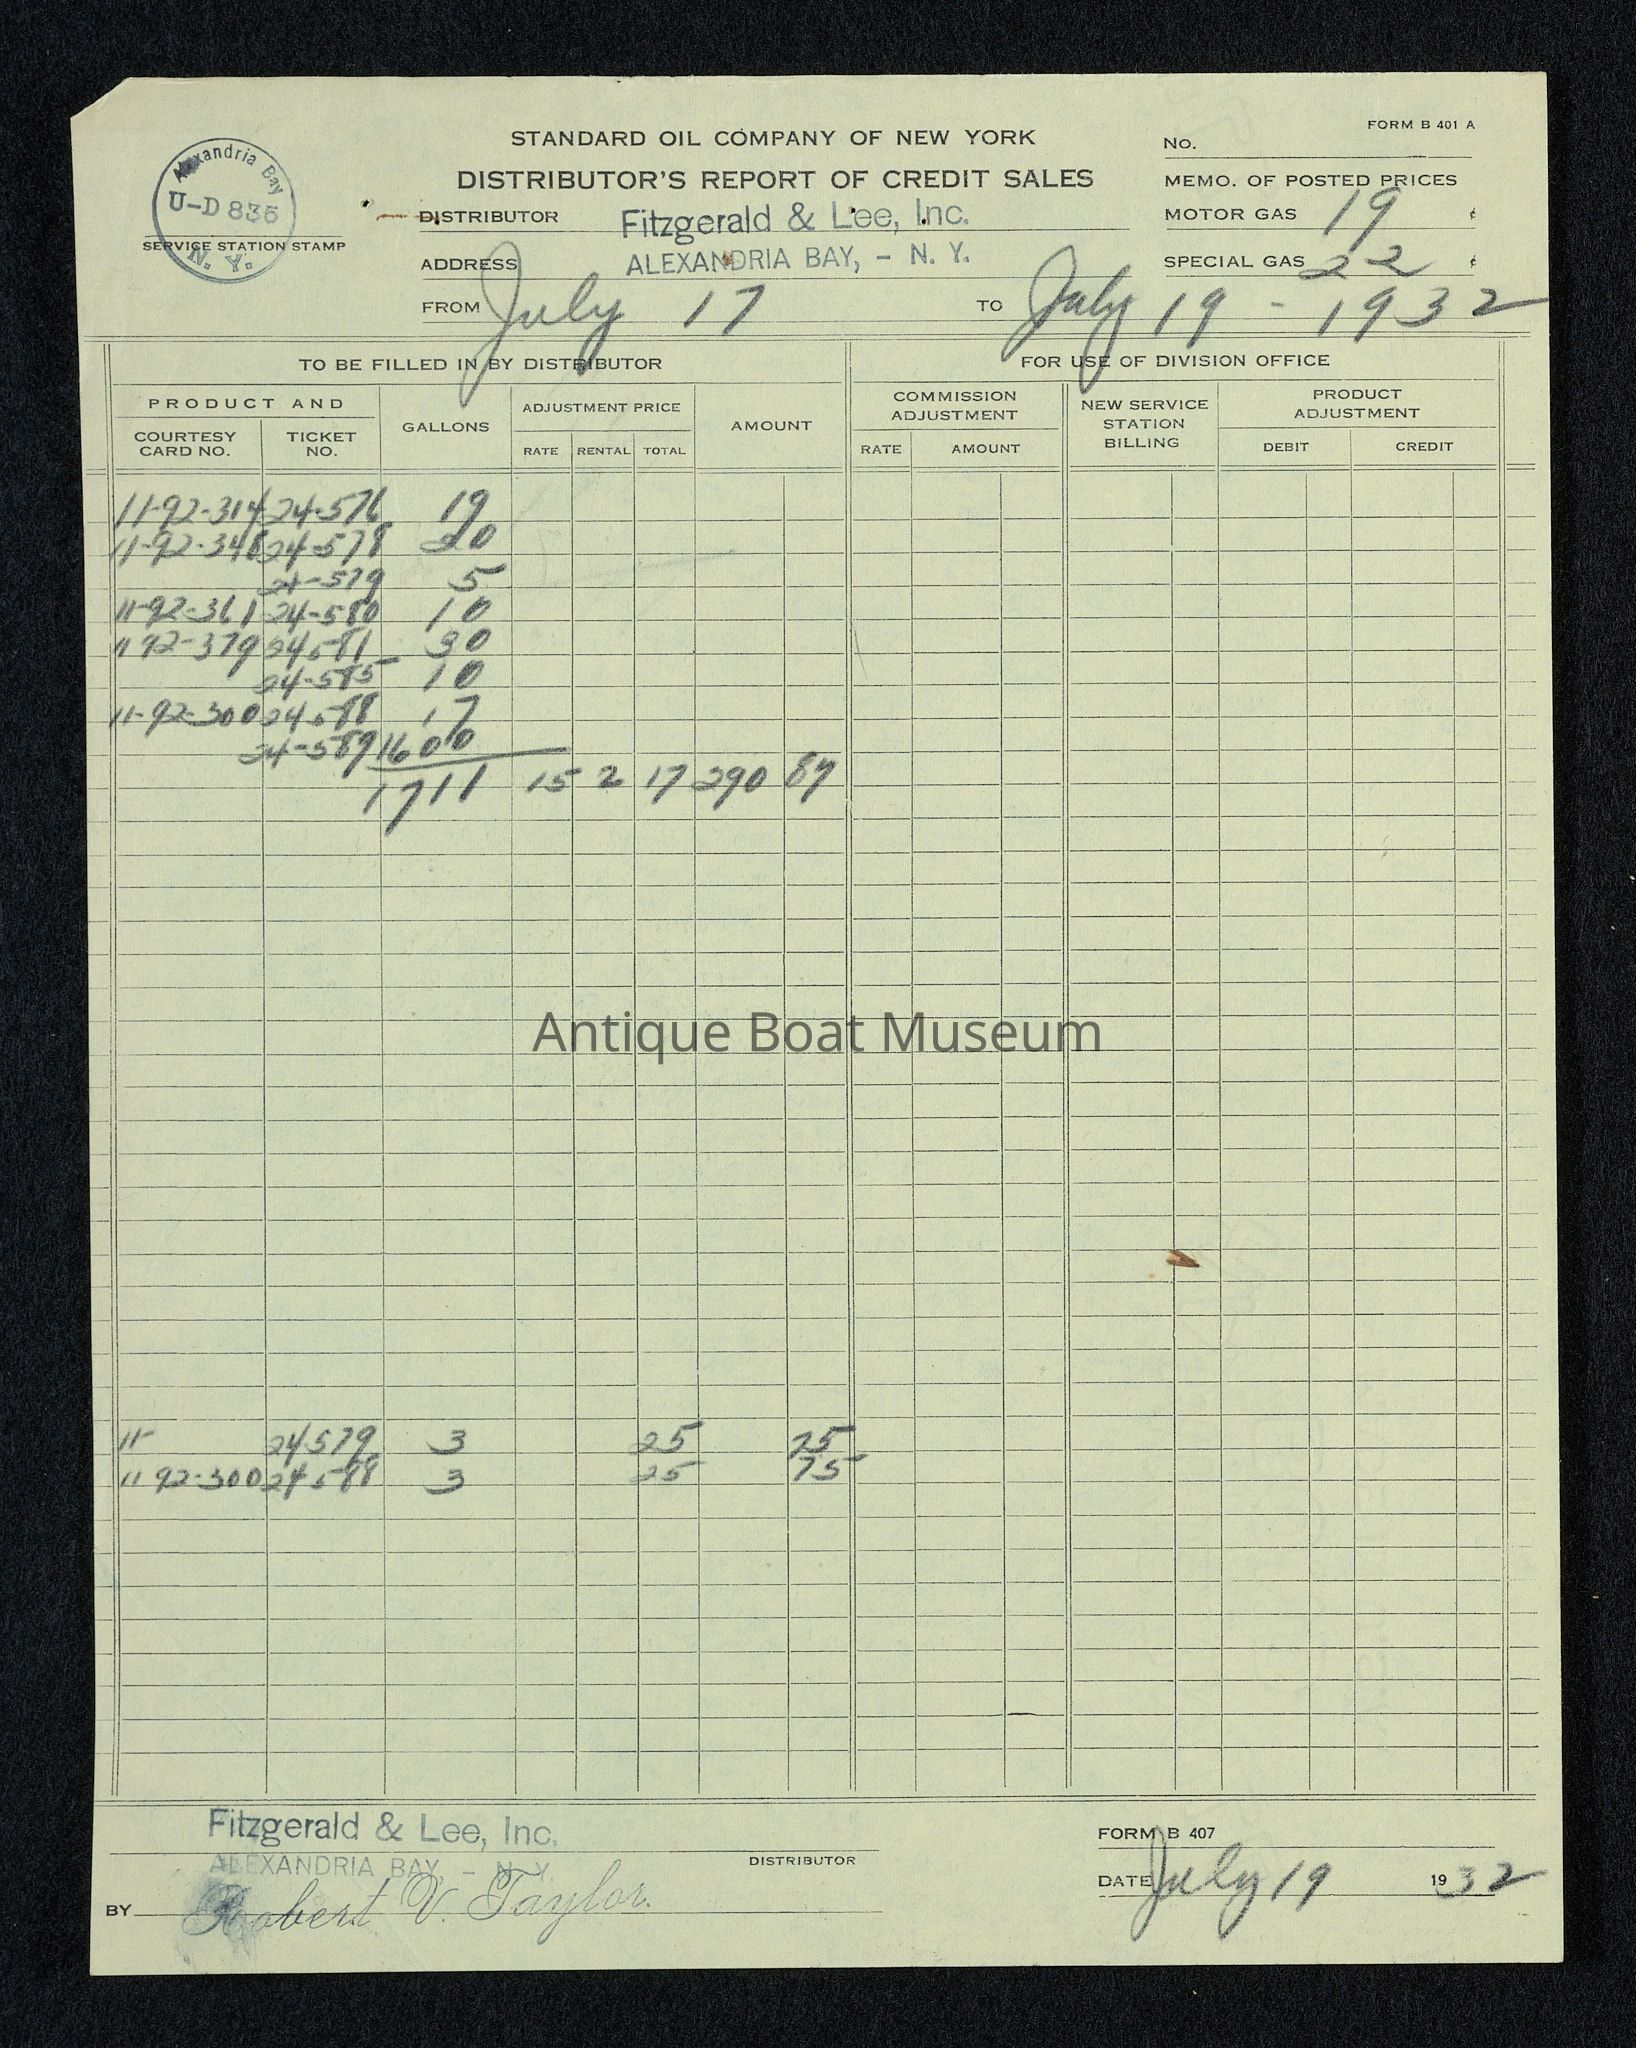 FORM B 401 A
STANDARD OIL COMPANY OF NEW YORK
No.
DISTRIBUTOR'S REPORT OF CREDIT SALES
MEMO. OF POSTED PRICES
Alexandria Bay
U-D 835
N. Y.
SERVICE STATION STAMP
DISTRIBUTOR Fitzgerald & Lee, Inc.
MOTOR GAS 19 ¢
ADDRESS ALEXANDRIA BAY, - N. Y.
SPECIAL GAS 22 ¢
FROM July 17 TO July 19 - 1932
TO BE FILLED IN BY DISTRIBUTOR FOR USE OF DIVISION OFFICE
PRODUCT AND GALLONS ADJUSTMENT PRICE AMOUNT COMMISSION ADJUSTMENT NEW SERVICE STATION BILLING PRODUCT ADJUSTMENT
COURTESY CARD NO. TICKET NO. RATE RENTAL TOTAL RATE AMOUNT DEBIT CREDIT
11-92-314 24-576 19
11-92-348 24-578 20
24-579 5
11-92-361 24-580 10
11 92-379 24581 30
24-585 10
11-92-300 24588 17
24-589 1600
1711 15 2 17 290 87
Antique Boat Museum
11- 24579 3 25 75
11 92-300 24588 3 25 75
Fitzgerald & Lee, Inc.
ALEXANDRIA BAY, - N. Y.
DISTRIBUTOR
FORM B 407
DATE July 19 1932
BY Robert V. Taylor.